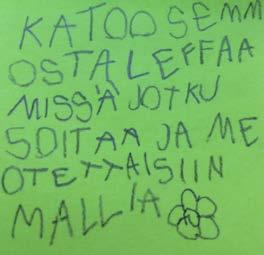 KATOO SEMM
OSTA LEFFAA
MISSÄ JOTKU
SOITAA JA ME
OTETTAISIIN
MALLIA